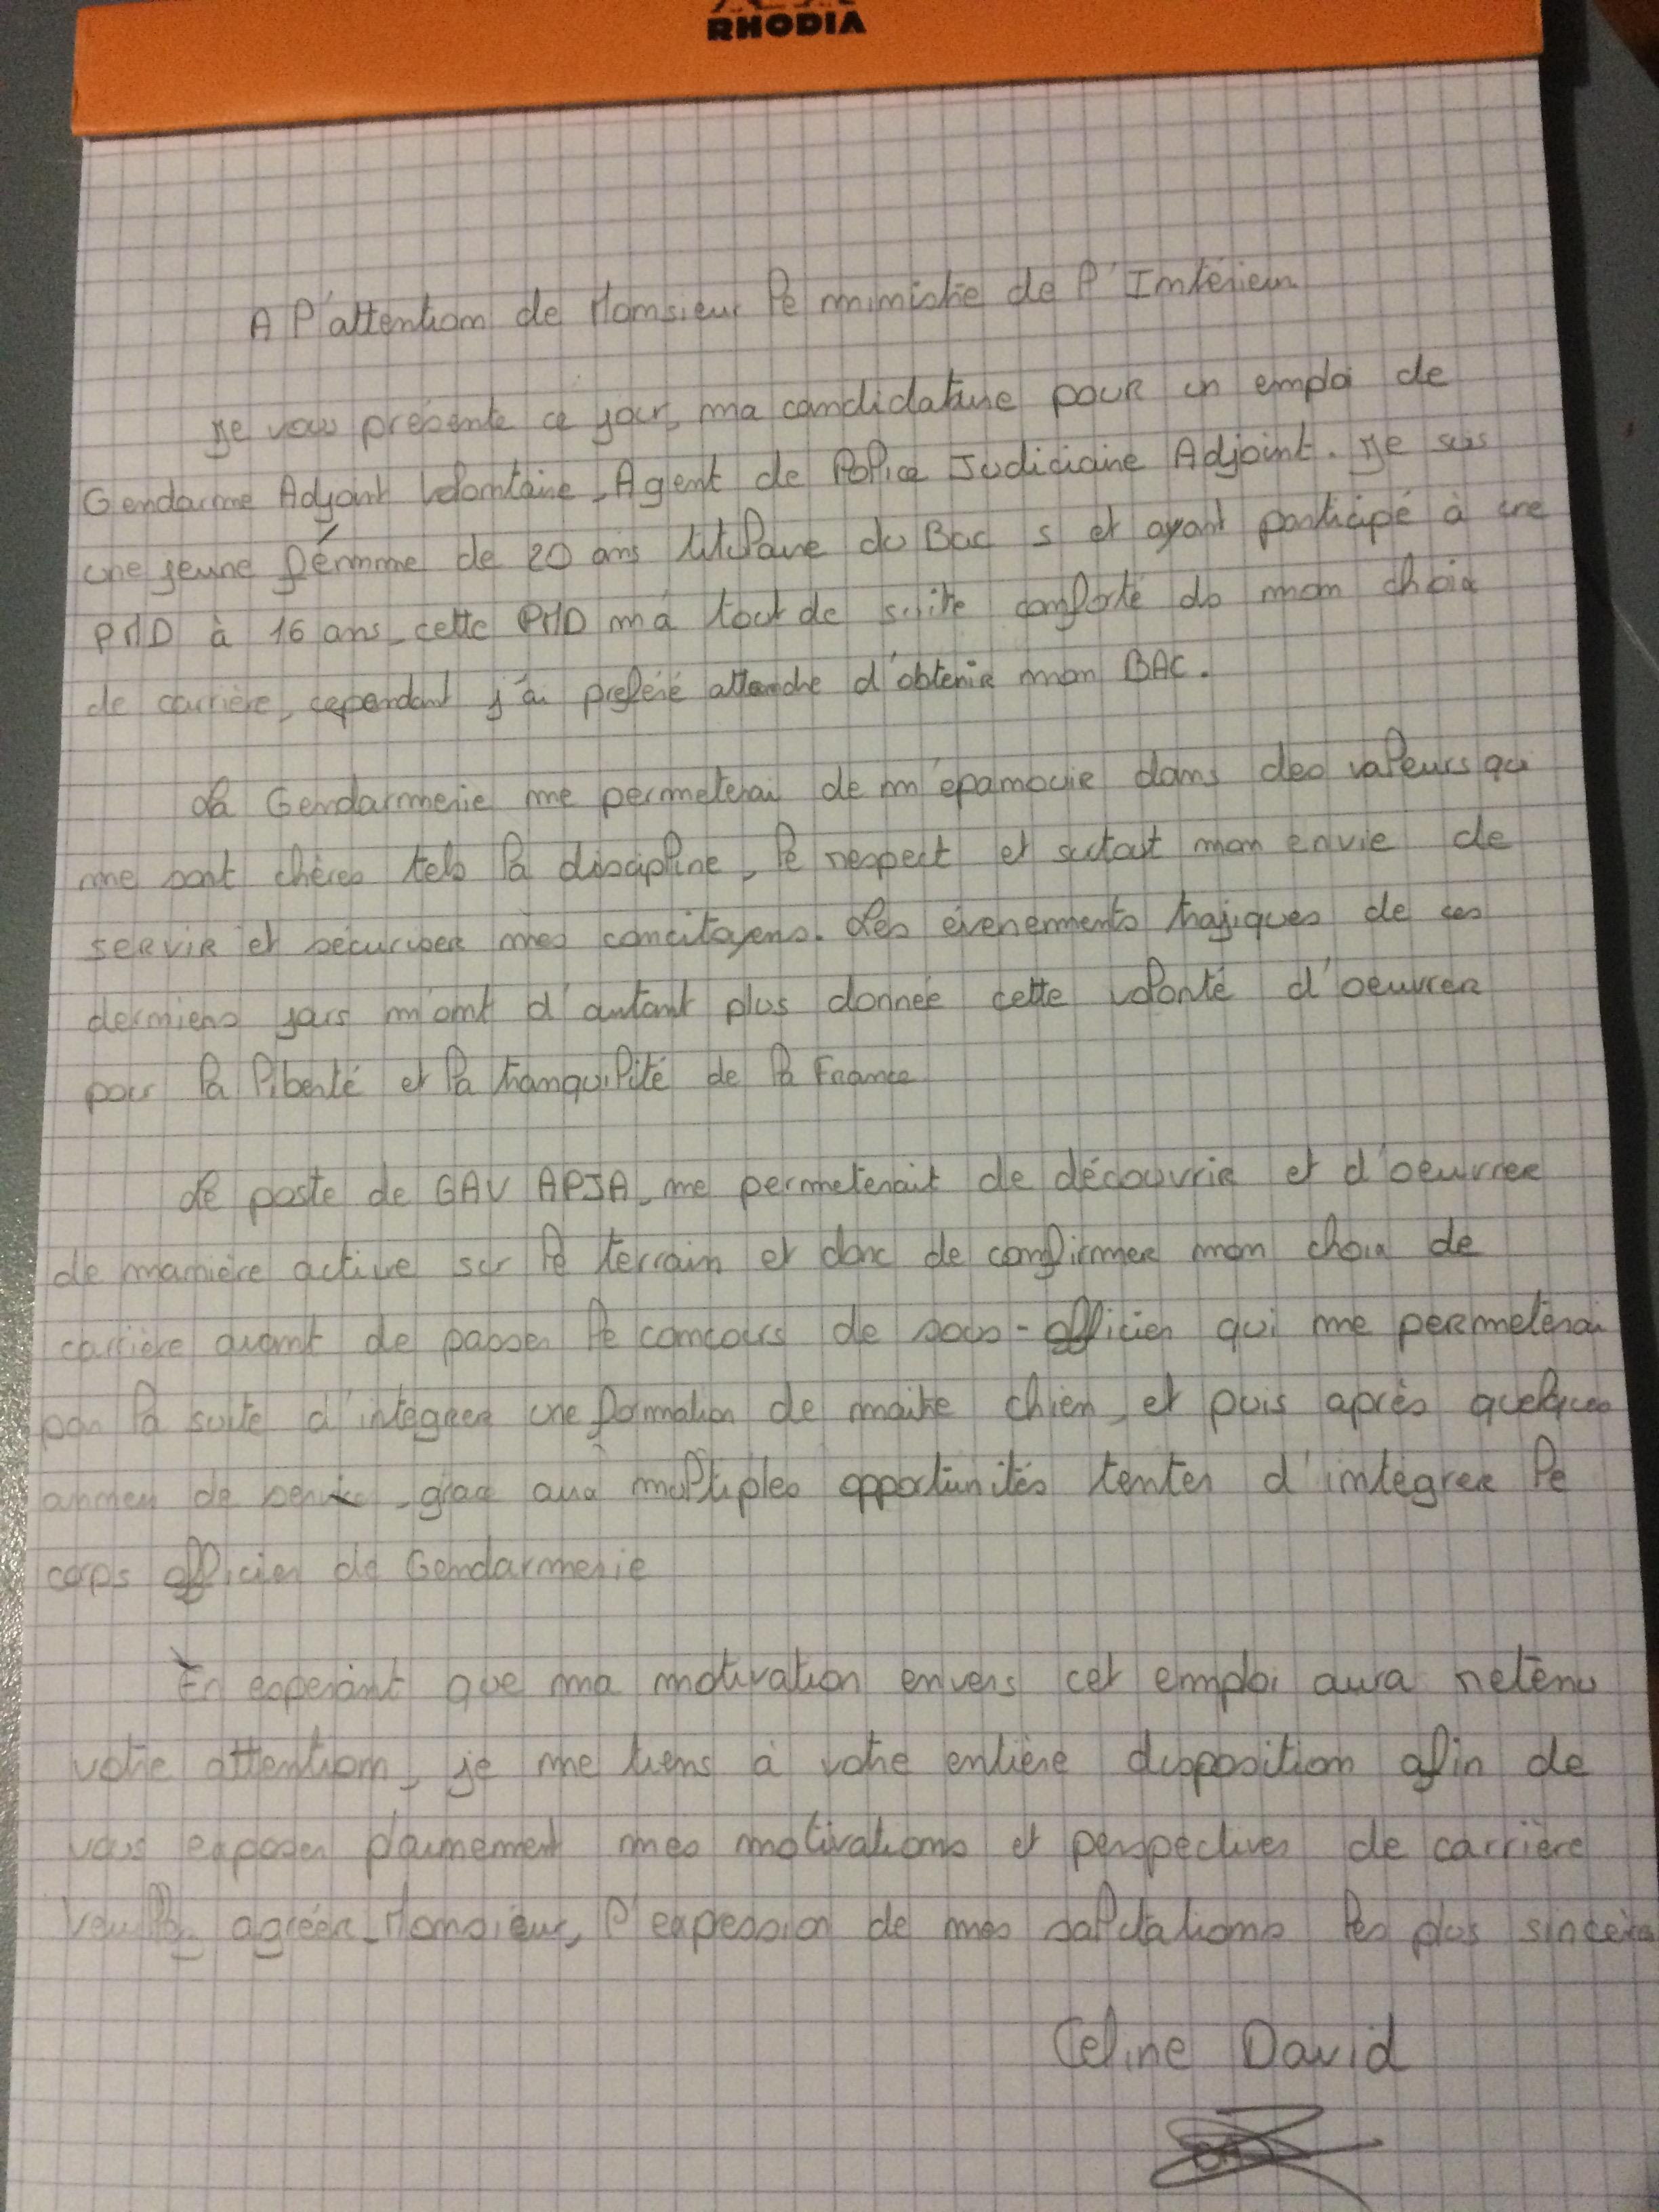 RHODIA
A l'attention de Monsieur le ministre de l'Intérieur
Je vous présente ce jour, ma candidature pour un emploi de
Gendarme Adjoint Volontaire, Agent de Police Judiciaire Adjoint. Je suis
une jeune femme de 20 ans titulaire du Bac S et ayant participé à une
PMD à 16 ans, cette PMD m'a tout de suite conforté do mon choix
de carrière, cependant j'ai preféré attendre d'obtenir mon BAC.
La Gendarmerie me permeterai de m'épanouir dans des valeurs qui
me sont chères tels la discipline, le respect et surtout mon envie de
servir et sécuriser mes concitoyens. Les évenements trajiques de ces
derniers jours m'ont d'autant plus donnée cette volonté d'oeuvrer
pour la liberté et la tranquilité de la France
Le poste de GAV APJA, me permeterait de découvrir et d'oeuvrer
de manière active sur le terrain et donc de confirmer mon choix de
carrière avant de passer le concours de sous-officier qui me permeterai
par la suite d'intégrer une formation de maitre chien, et puis après quelques
années de service, grace aux multiples opportunités tenter d'intégrer le
corps officier de Gendarmerie
En esperant que ma motivation envers cet emploi aura retenu
votre attention, je me tiens à votre entière disposition afin de
vous exposer plainement mes motivations et perspectives de carrière
Veuillez agréer, Monsieur, l'expession de mes salutations les plus sincères
Celine David